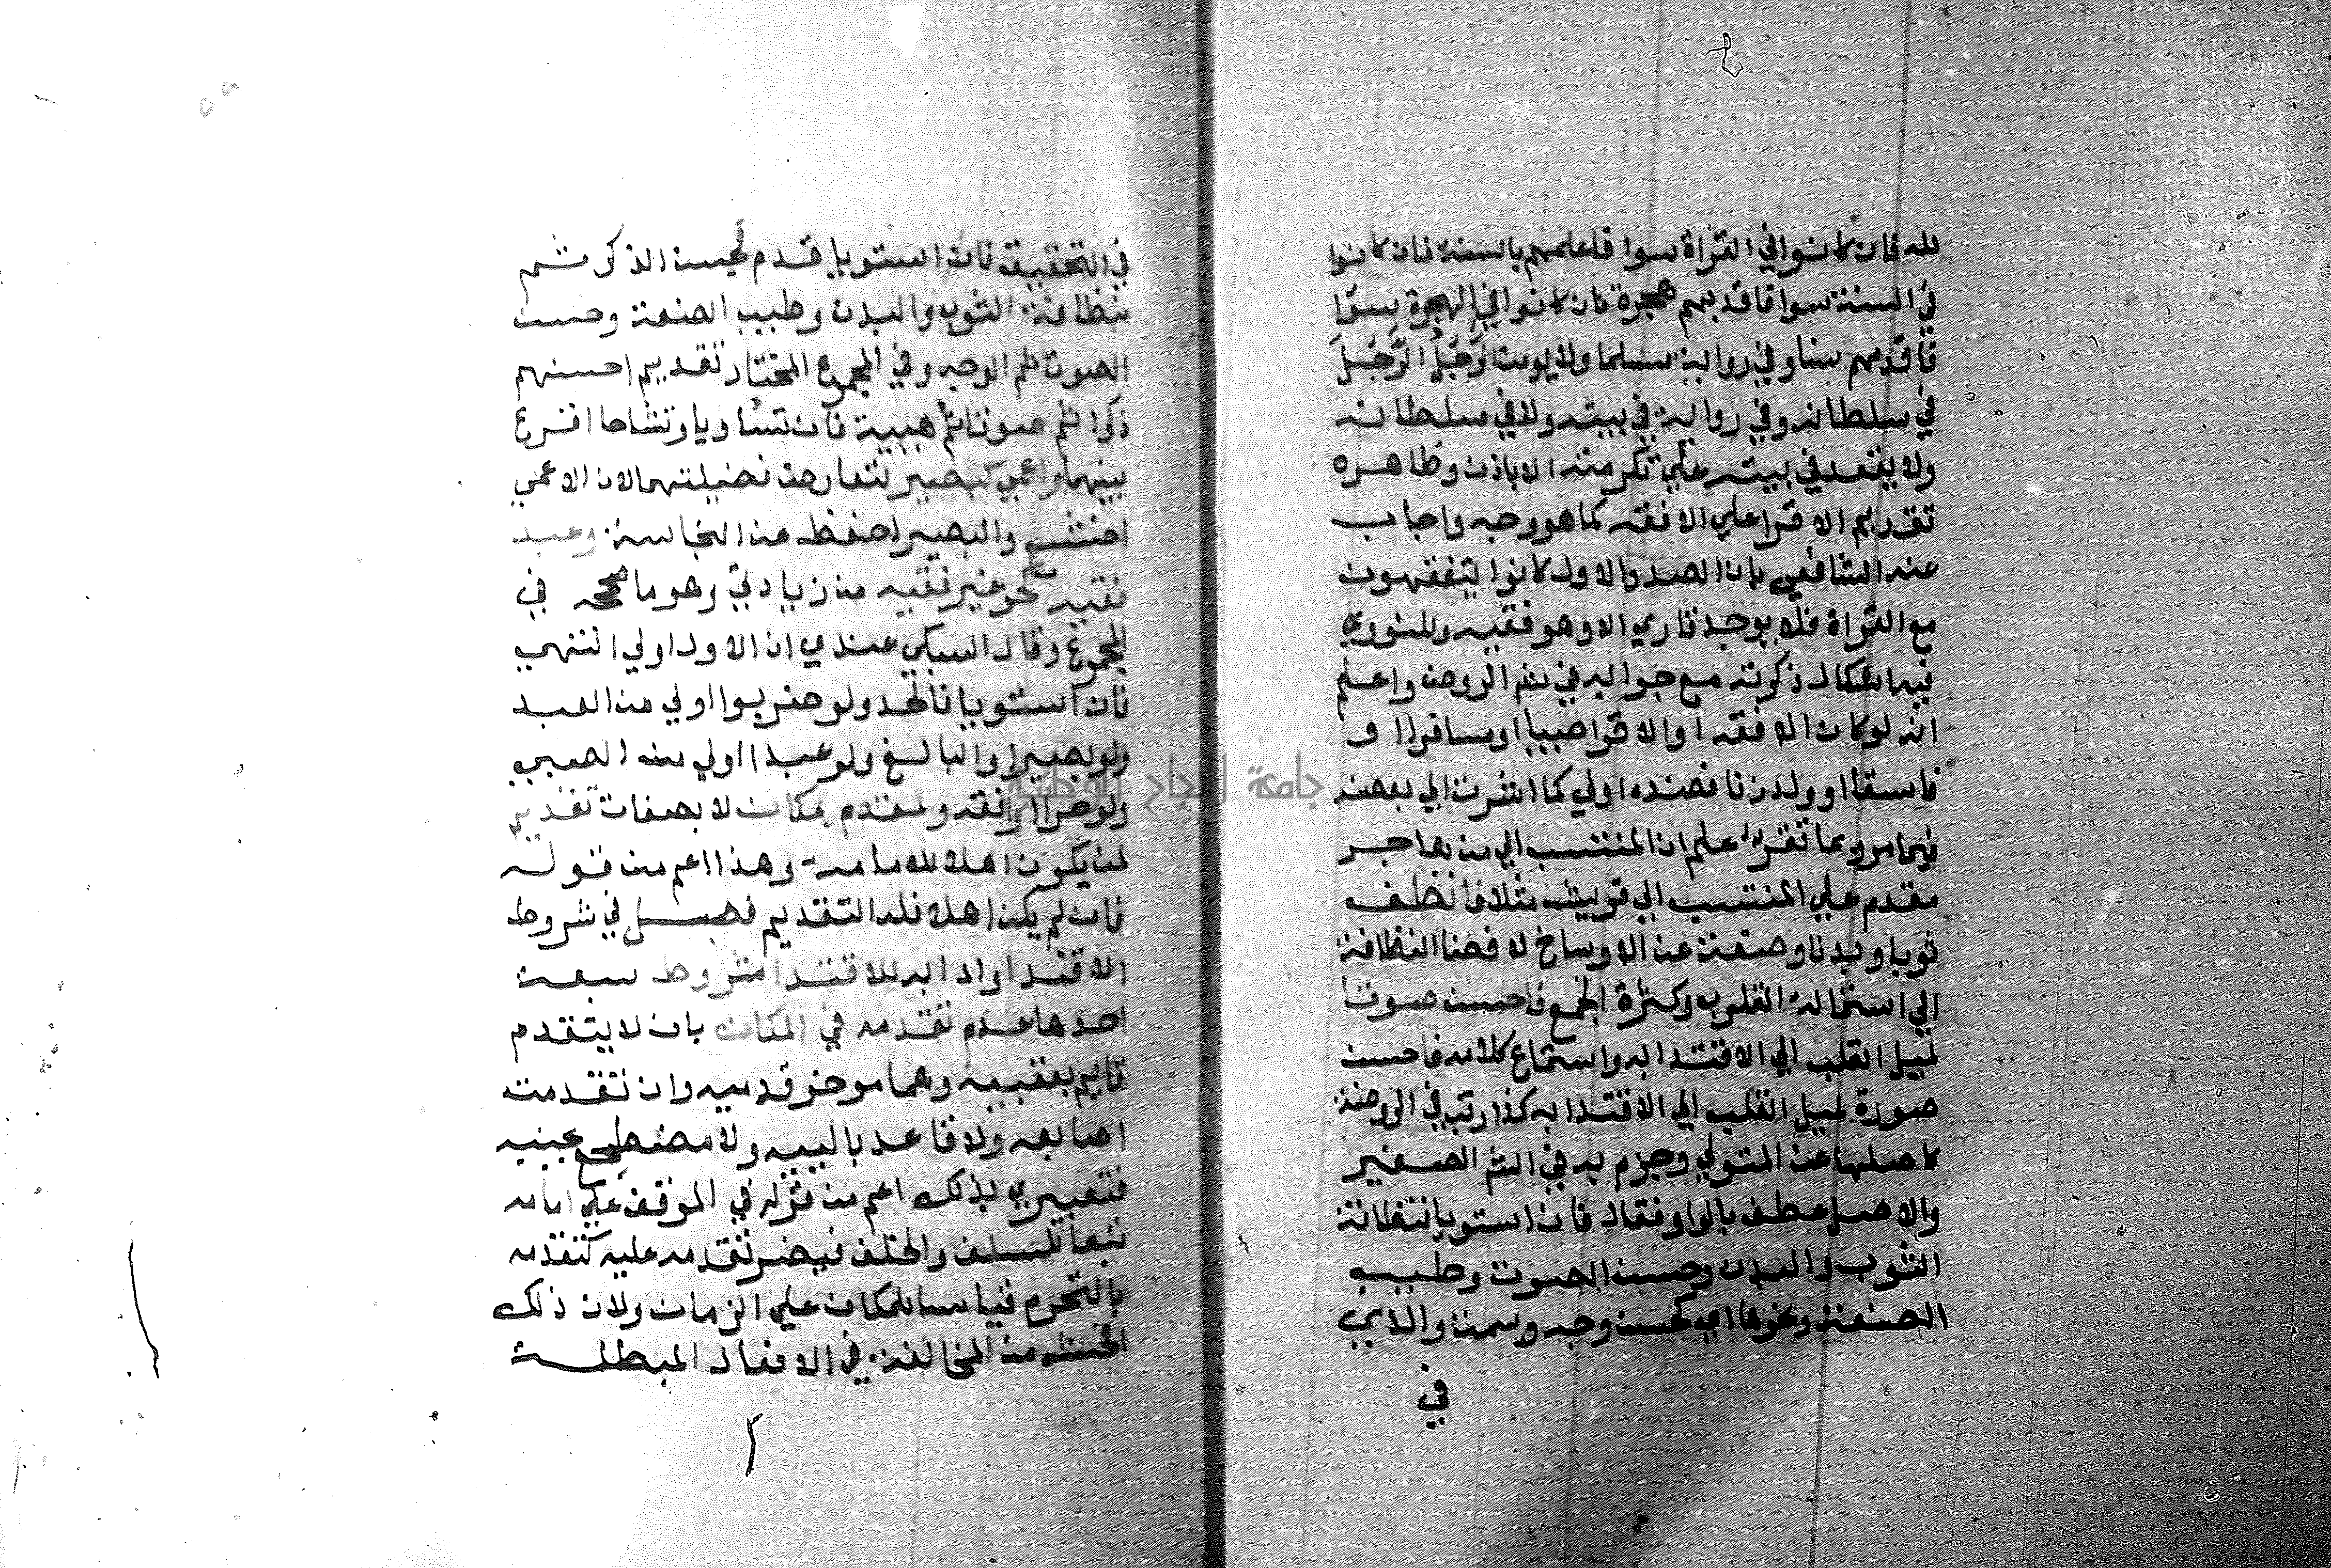 لله فان كانوا في القراة سوا فاعلمهم بالسنة فان كانوا
في السنة سوا فاقدمهم هجرة فان كانوا في الهجرة سوا
فاقدمهم سنا وفي رواية سلما ولا يومن الرَّجُلُ الرَّجُلَ
في سلطانه وفي رواية في بيته ولا في سلطانه
ولا يقعد في بيته علي تكرمته الا باذن وظاهره
تقديم الاقرا علي الافقه كما هو وجه واجاب
عنه الشافعي بان الصدر الاول كانوا يتفقهون
مع القراة فلا يوجد قاري الا وهو فقيه وللنووي
فيه اشكال ذكرته مع جوابه في شر الروض واعلم
انه لو كان الافقه او الاقرا صبيا او مسافرا او
فاسقا او ولد زنا فضده اولي كما اشرت الي بعضه
فيما مر وبما تقرر علم ان المنتسب الي من هاجر
مقدم علي المنتسب الي قريش مثلا فانظف
ثوبا وبدنا وصنعة عن الاوساخ لافضا النظافة
الي استمالة القلوب وكثرة الجمع فاحسن صوتا
لميل القلب الي الاقتدا به واستماع كلامه فاحسن
صورة لميل القلب الي الاقتدا به كذا رتب في الروضة
كاصلها عن المتولي وجزم به في الشر الصغير
والاصل عطف بالواو فقال فان استويا فنظافة
الثوب والبدن وحسن الصوت وطيب
الصنعة ونحوها اي كحسن وجه وسمت والذي
في
في التحقيق فان استويا قدم بحسن الذكر ثم
بنظافة الثوب والبدن وطيب الصنعة وحسن
الصوت ثم الوجه وفي المجموع المختار تقديم احسنهم
ذكرا ثم صوتا ثم هيية فان تساويا وتشاحا اقرع
بينهما واعمي كبصير لتعارض فضيلتهما لان الاعمي
اخشع والبصير احفظ عن النجاسة وعبد
فقيه كحر غير فقيه من زيادتي وهو ما صححه في
المجموع وقال السبكي عندي ان الاول اولي انتهي
فان استويا فالحر ولو ضريرا اولي من العبد
ولو بصيرا والبالغ ولو عبدا اولي من الصبي
ولو حرا افقه ولمقدم بمكان لا بصفات تقديم
لمن يكون اهلا للامامة وهذا اعم من قوله
فان لم يكن اهلا فله التقديم فصل في شروط
الاقتدا وادابه للاقتدا شروط سبعة
احدها عدم تقدمه في المكان بان لا يتقدم
قايم بعقبيه وهما موخر قدميه وان تقدمت
اصابعه ولا قاعد بالييه ولا مضطجع بجنبه
فتعبيري بذلك اعم من قوله في الموقف علي امامه
تبعا للسلف والخلف فيضر تقدمه عليه كتقدمه
بالتحرم قياسا للمكان علي الزمان ولان ذلك
افحش من المخالفة في الافعال المبطلة
جامعة النجاح الوطنية